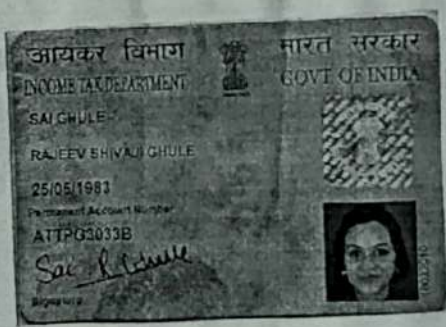 आयकर विभाग
INCOME TAX DEPARTMENT
भारत सरकार
GOVT. OF INDIA
SAI GHULE
RAJEEV SHIVAJI GHULE
25/05/1983
Permanent Account Number
ATTPG3033B
Sai R Ghule
Signature